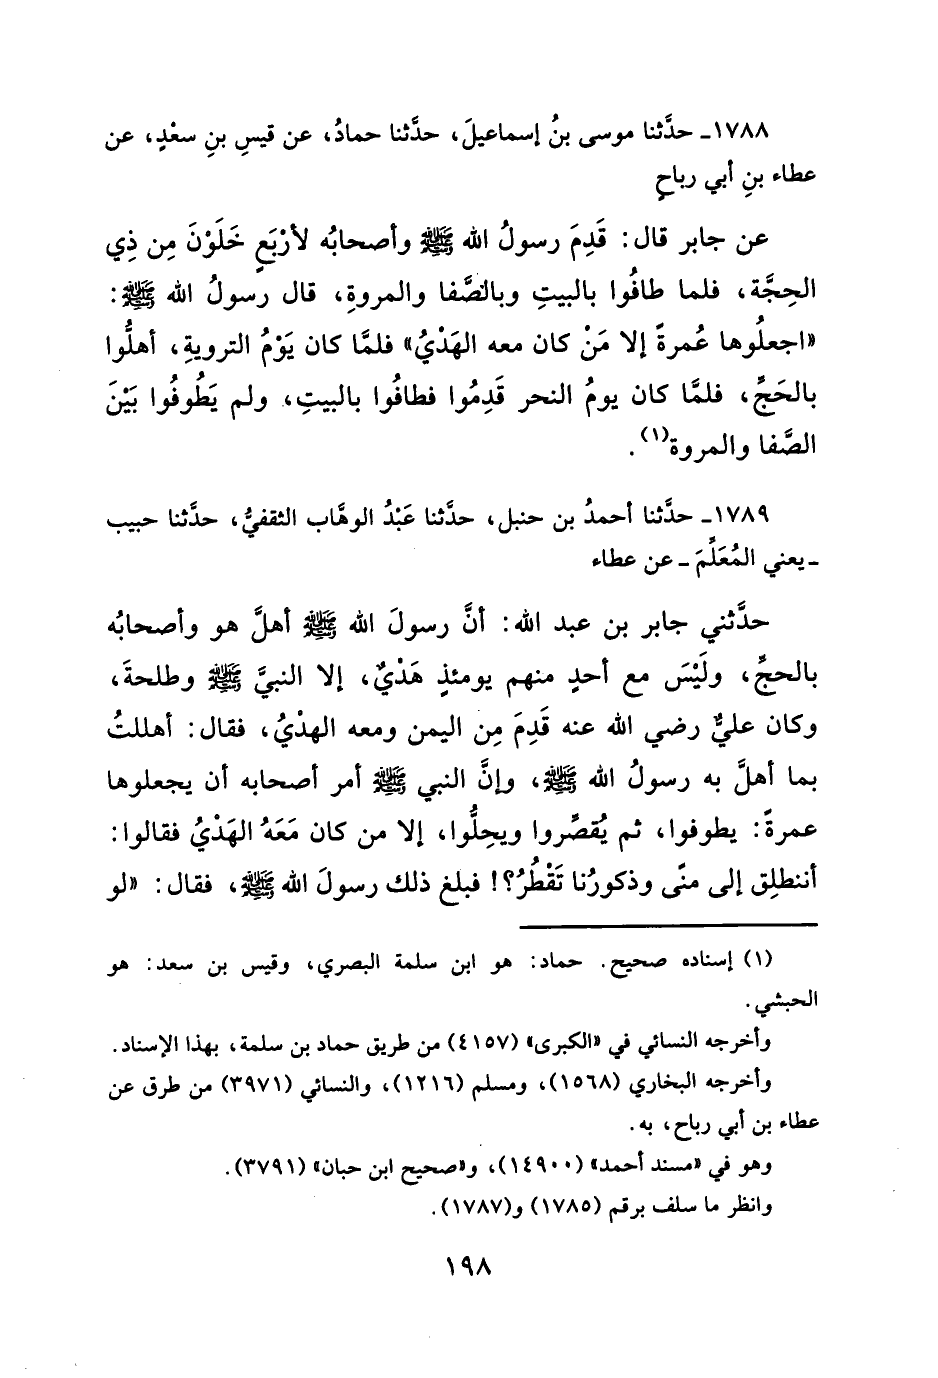 ١٧٨٨ـ حدَّثنا موسى بنُ إسماعيلَ، حدَّثنا حمادُ، عن قيسِ بنِ سعْدٍ، عن
عطاء بنِ أبي رباحٍ
عن جابر قال: قَدِمَ رسولُ الله ﷺ وأصحابُه لأرْبَعٍ خَلَوْنَ مِن ذِي
الحِجَّة، فلما طافُوا بالبيتِ وبالصَّفا والمروةِ، قال رسولُ الله ﷺ:
«اجعلُوها عُمرةً إلا مَنْ كان معه الهَدْيُ» فلمَّا كان يَوْمُ الترويةِ، أهلُّوا
بالحَجِّ، فلمَّا كان يومُ النحر قَدِمُوا فطافُوا بالبيتِ، ولم يَطُوفُوا بَيْنَ
الصَّفا والمروة(١).
١٧٨٩ـ حدَّثنا أحمدُ بن حنبل، حدَّثنا عَبْدُ الوهَّاب الثقفيُّ، حدَّثنا حبيب
ـ يعني المُعَلِّمَ ـ عن عطاء
حدَّثني جابر بن عبد الله: أنَّ رسولَ الله ﷺ أهلَّ هو وأصحابُه
بالحجِّ، ولَيْسَ مع أحدٍ منهم يومئذٍ هَدْيٌ، إلا النبيَّ ﷺ وطلحةَ،
وكان عليٌّ رضي الله عنه قَدِمَ مِن اليمن ومعه الهدْيُ، فقال: أهللتُ
بما أهلَّ به رسولُ الله ﷺ، وإنَّ النبي ﷺ أمر أصحابه أن يجعلوها
عمرةً: يطوفوا، ثم يُقصِّروا ويحِلُّوا، إلا من كان مَعَهُ الهَدْيُ فقالوا:
أننطلِق إلى منًى وذكورُنا تَقْطُرُ؟! فبلغ ذلك رسولَ الله ﷺ، فقال: «لو
(١) إسناده صحيح. حماد: هو ابن سلمة البصري، وقيس بن سعد: هو
الحبشي.
وأخرجه النسائي في «الكبرى» (٤١٥٧) من طريق حماد بن سلمة، بهذا الإسناد.
وأخرجه البخاري (١٥٦٨)، ومسلم (١٢١٦)، والنسائي (٣٩٧١) من طرق عن
عطاء بن أبي رباح، به.
وهو في «مسند أحمد» (١٤٩٠٠)، و«صحيح ابن حبان» (٣٧٩١).
وانظر ما سلف برقم (١٧٨٥) و(١٧٨٧).
١٩٨